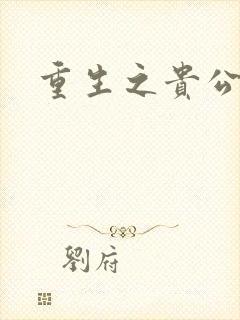 重生之貴公
劉府